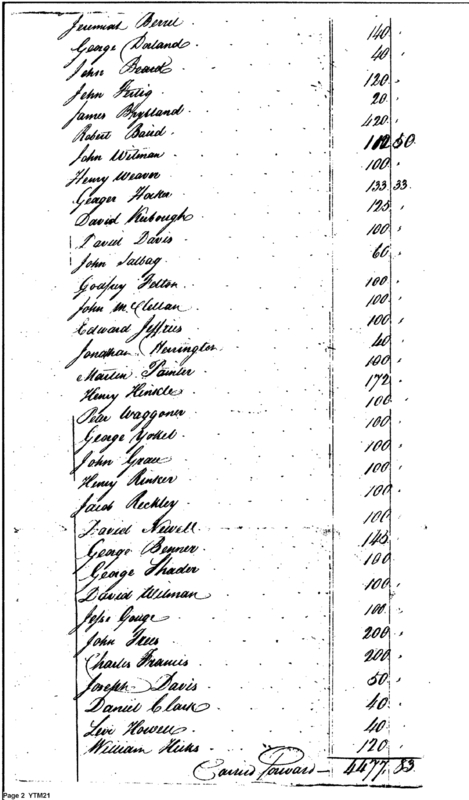 Jeremiah Berrel 140
George Dorland 40
John Beard 120
John Fertig 20
James Bryland 420
Robert Baird 112 50
John Wilman 100
Henry Weaver 133 33
Geager Hocker 125
David Kisbough 100
David Davis 60
John Salbag
Godfrey Felton 100
John McClellan 100
Edward Jeffries 100
Jonathan Herrington 40
Martin Painter 100
Henry Hinkle 172
Peter Waggoner 100
George Yokel 100
John Grace 100
Henry Rinker 100
Jacob Reckley 100
David Newell 100
George Benner 145
George Shader 100
David Wilman 100
Jesse Gouge 100
John Frees 200
Charles Francis 200
Joseph Davis 50
Daniel Clark 40
Levi Howell 40
William Hicks 120
Carried Forward 4477 83
Page 2 YTM21